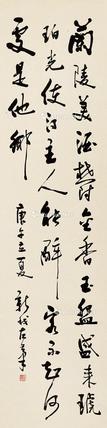 蘭陵美酒鬱金香玉盤盛来琥
珀光使主人能醉客不知何
處是他鄉
庚午立夏 新我左筆